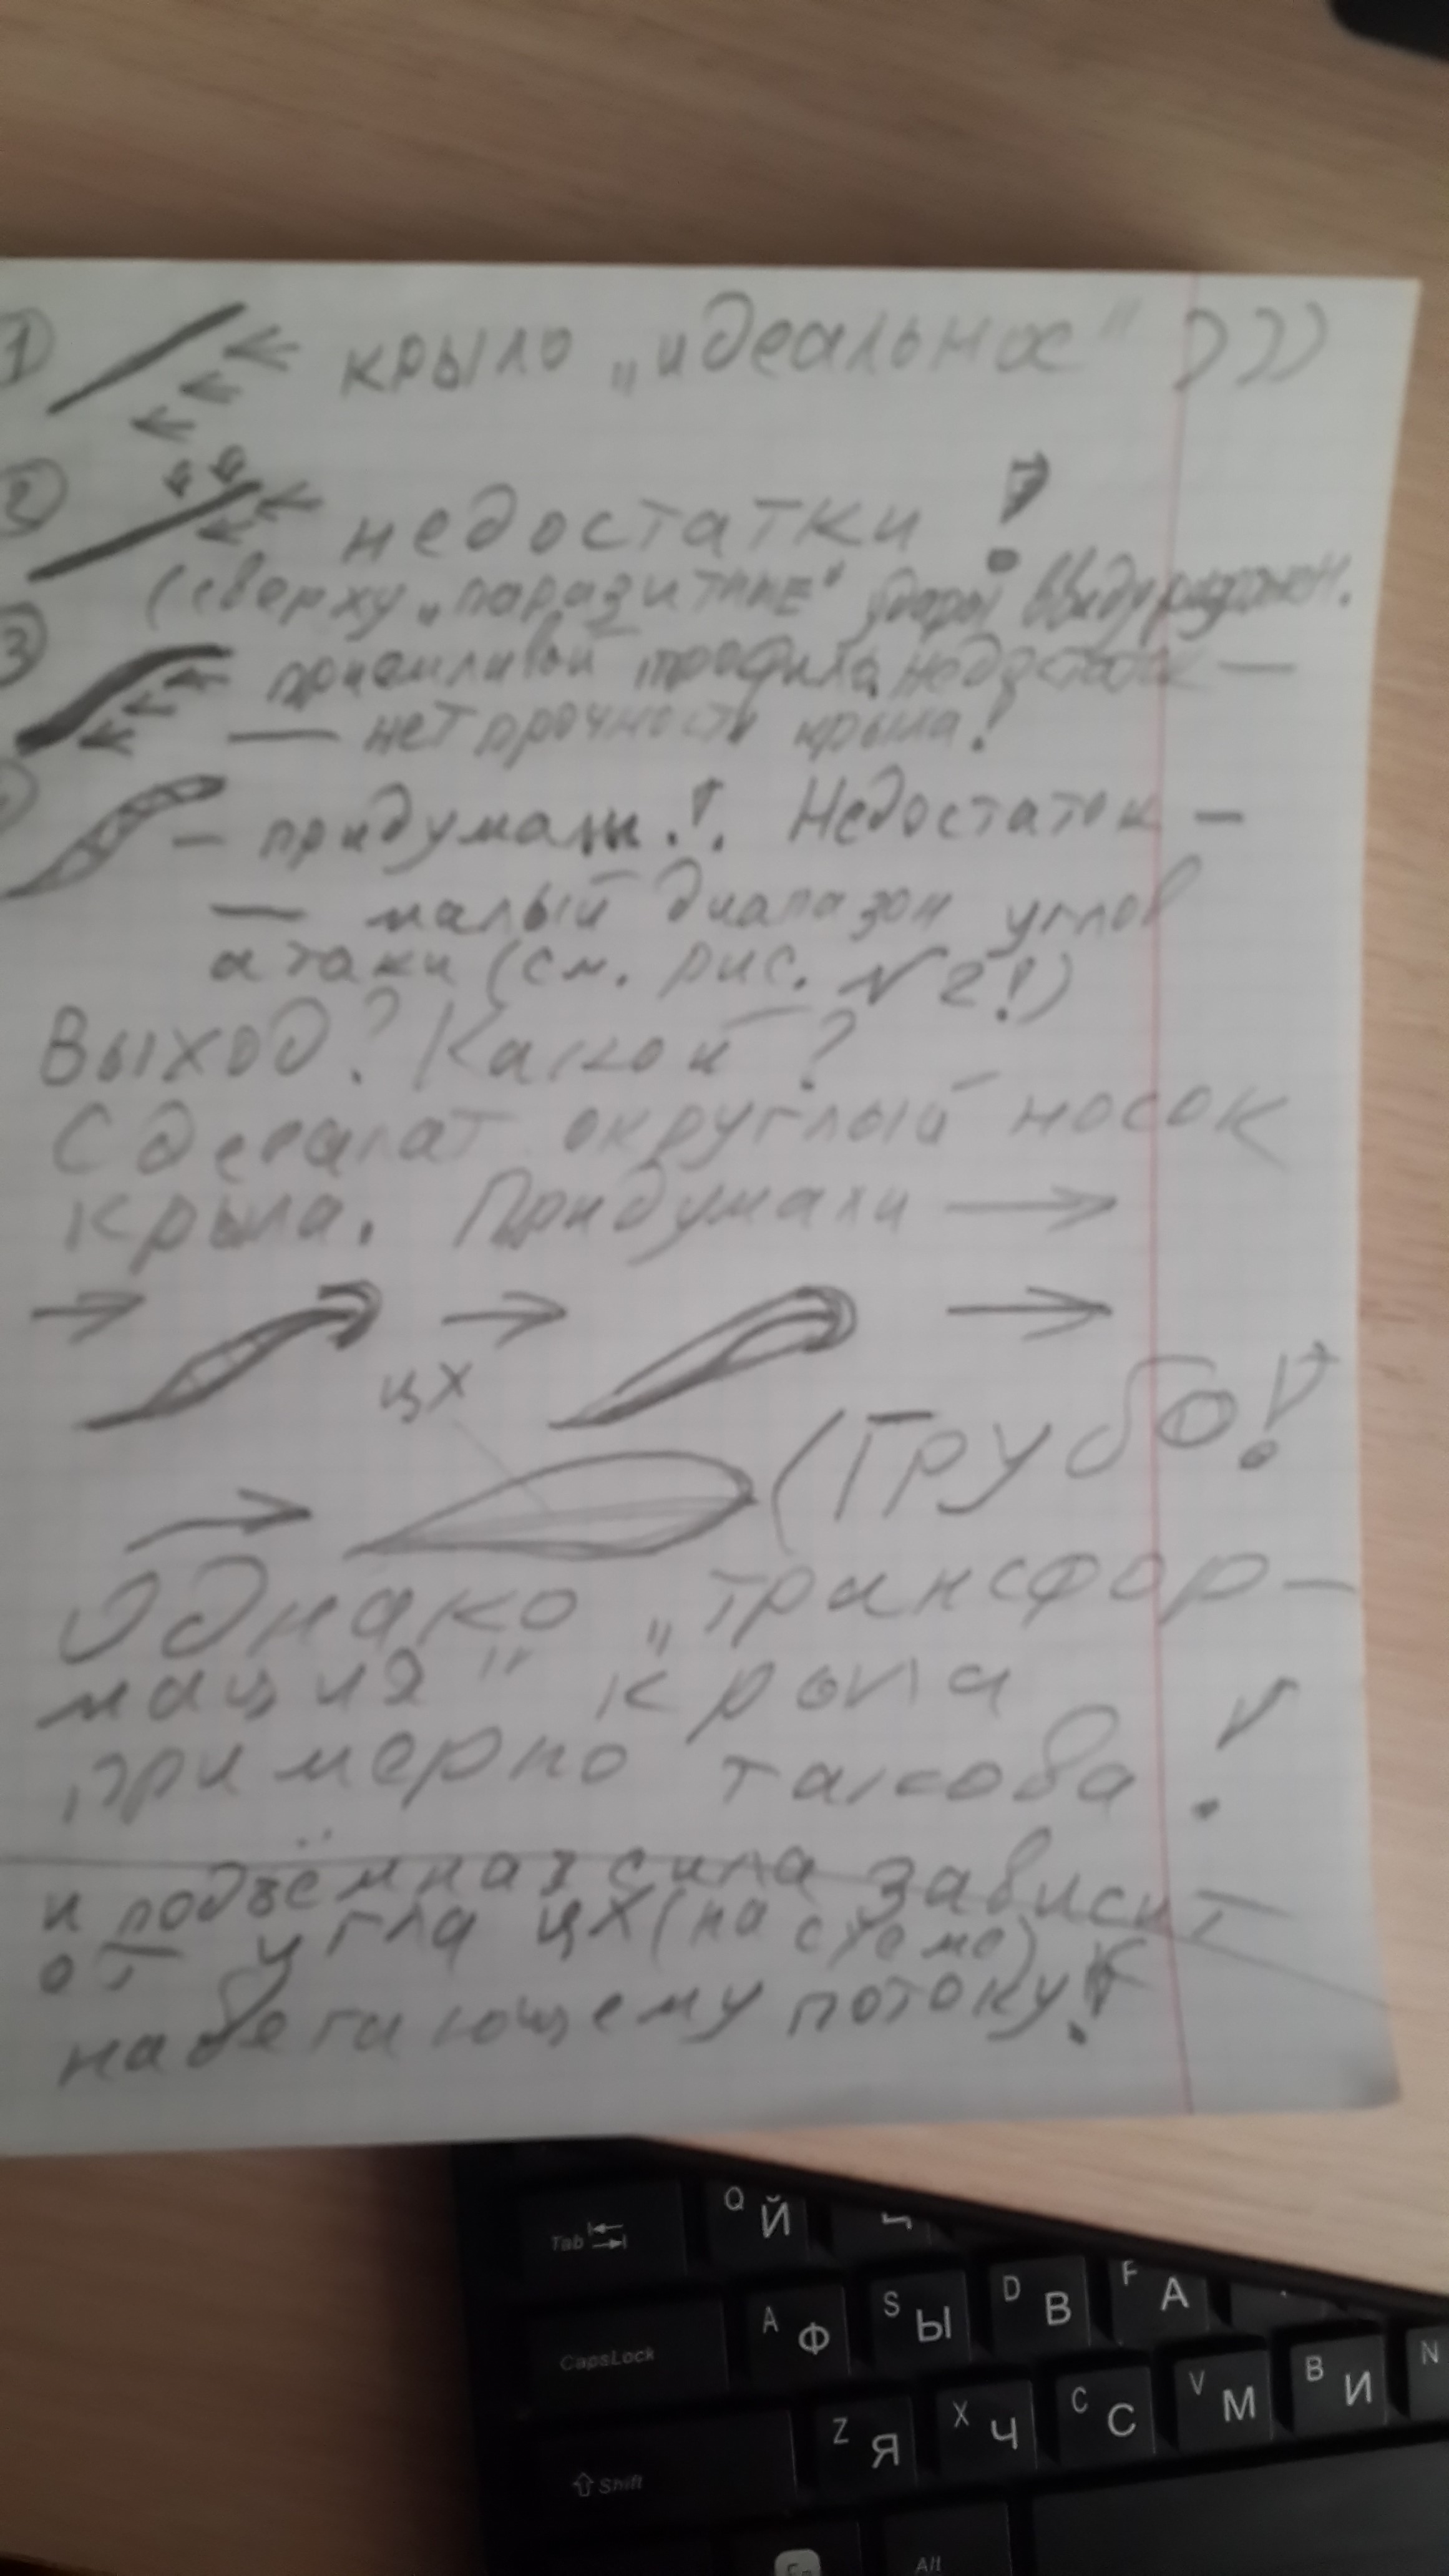 1 крыло „идеальное" )))
2 недостатки !
(сверху „паразитные" удары ввиду
3 профиль, недостаток —
— нет прочности крыла!
— придумали!. Недостаток —
— малый диапазон углов
атаки (см. рис. N2!)
Выход? Какой?
Сделат округлый носок
крыла. Придумали
ЦХ
(Грубо!
Однако „трансфор-
мация" крыла
примерно такова!
и подъёмная сила зависит
от угла ЦХ (на схеме)
набегающему потоку!
Tab Q Й Ц
CapsLock A Ф S Ы D В F А
Shift Z Я X Ч C С V М B И N
Fn Alt